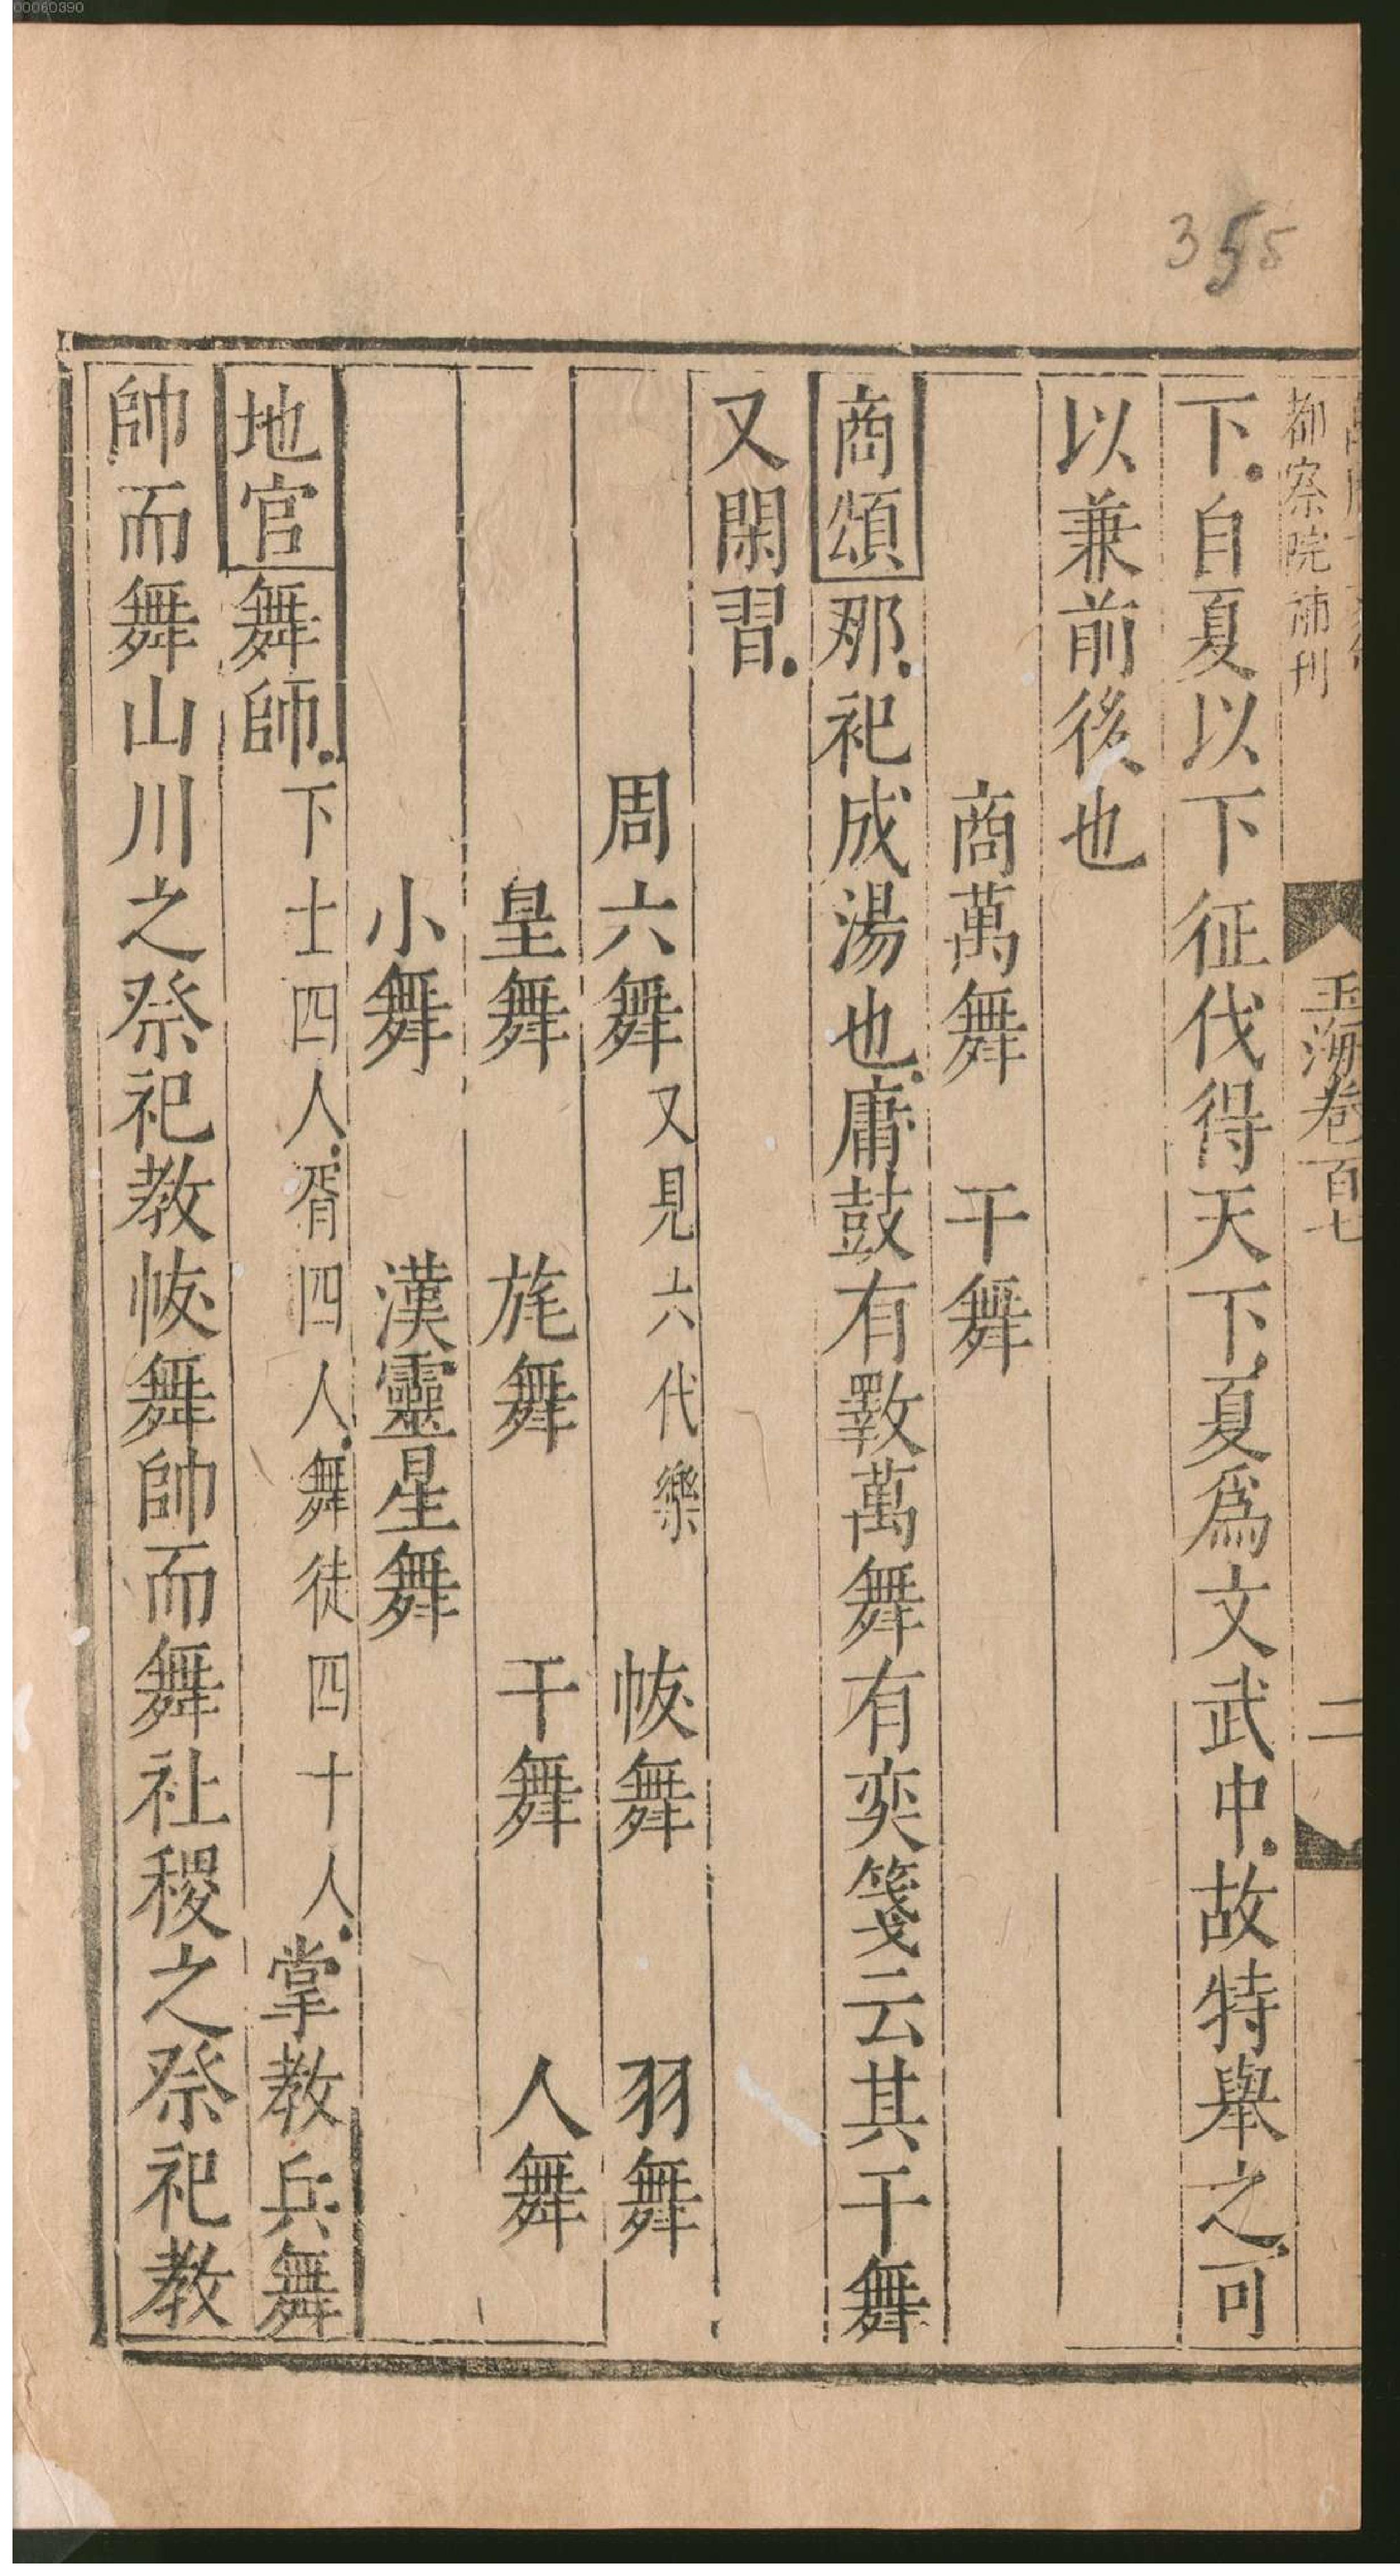 00060390
355
都察院補刊
玉海卷百七
二
下自夏以下征伐得天下夏爲文武中故特舉之可
以兼前後也
商萬舞 干舞
商頌那祀成湯也庸鼓有斁萬舞有奕箋云其干舞
又閑習
周六舞又見六代樂 帗舞 羽舞
皇舞 旄舞 干舞 人舞
小舞 漢靈星舞
地官舞師下士四人胥四人舞徒四十人掌教兵舞
帥而舞山川之祭祀教帗舞帥而舞社稷之祭祀教